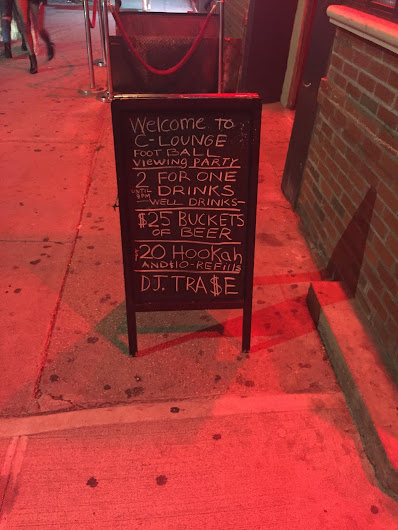 Welcome To
C-LOUNGE
FOOTBALL
VIEWING PARTY
2 FOR ONE
UNTIL 9PM DRINKS
-WELL DRINKS-
$25 BUCKETS
OF BEER
$20 HOOKAh
AND $10-REFillS
DJ. TRA$E